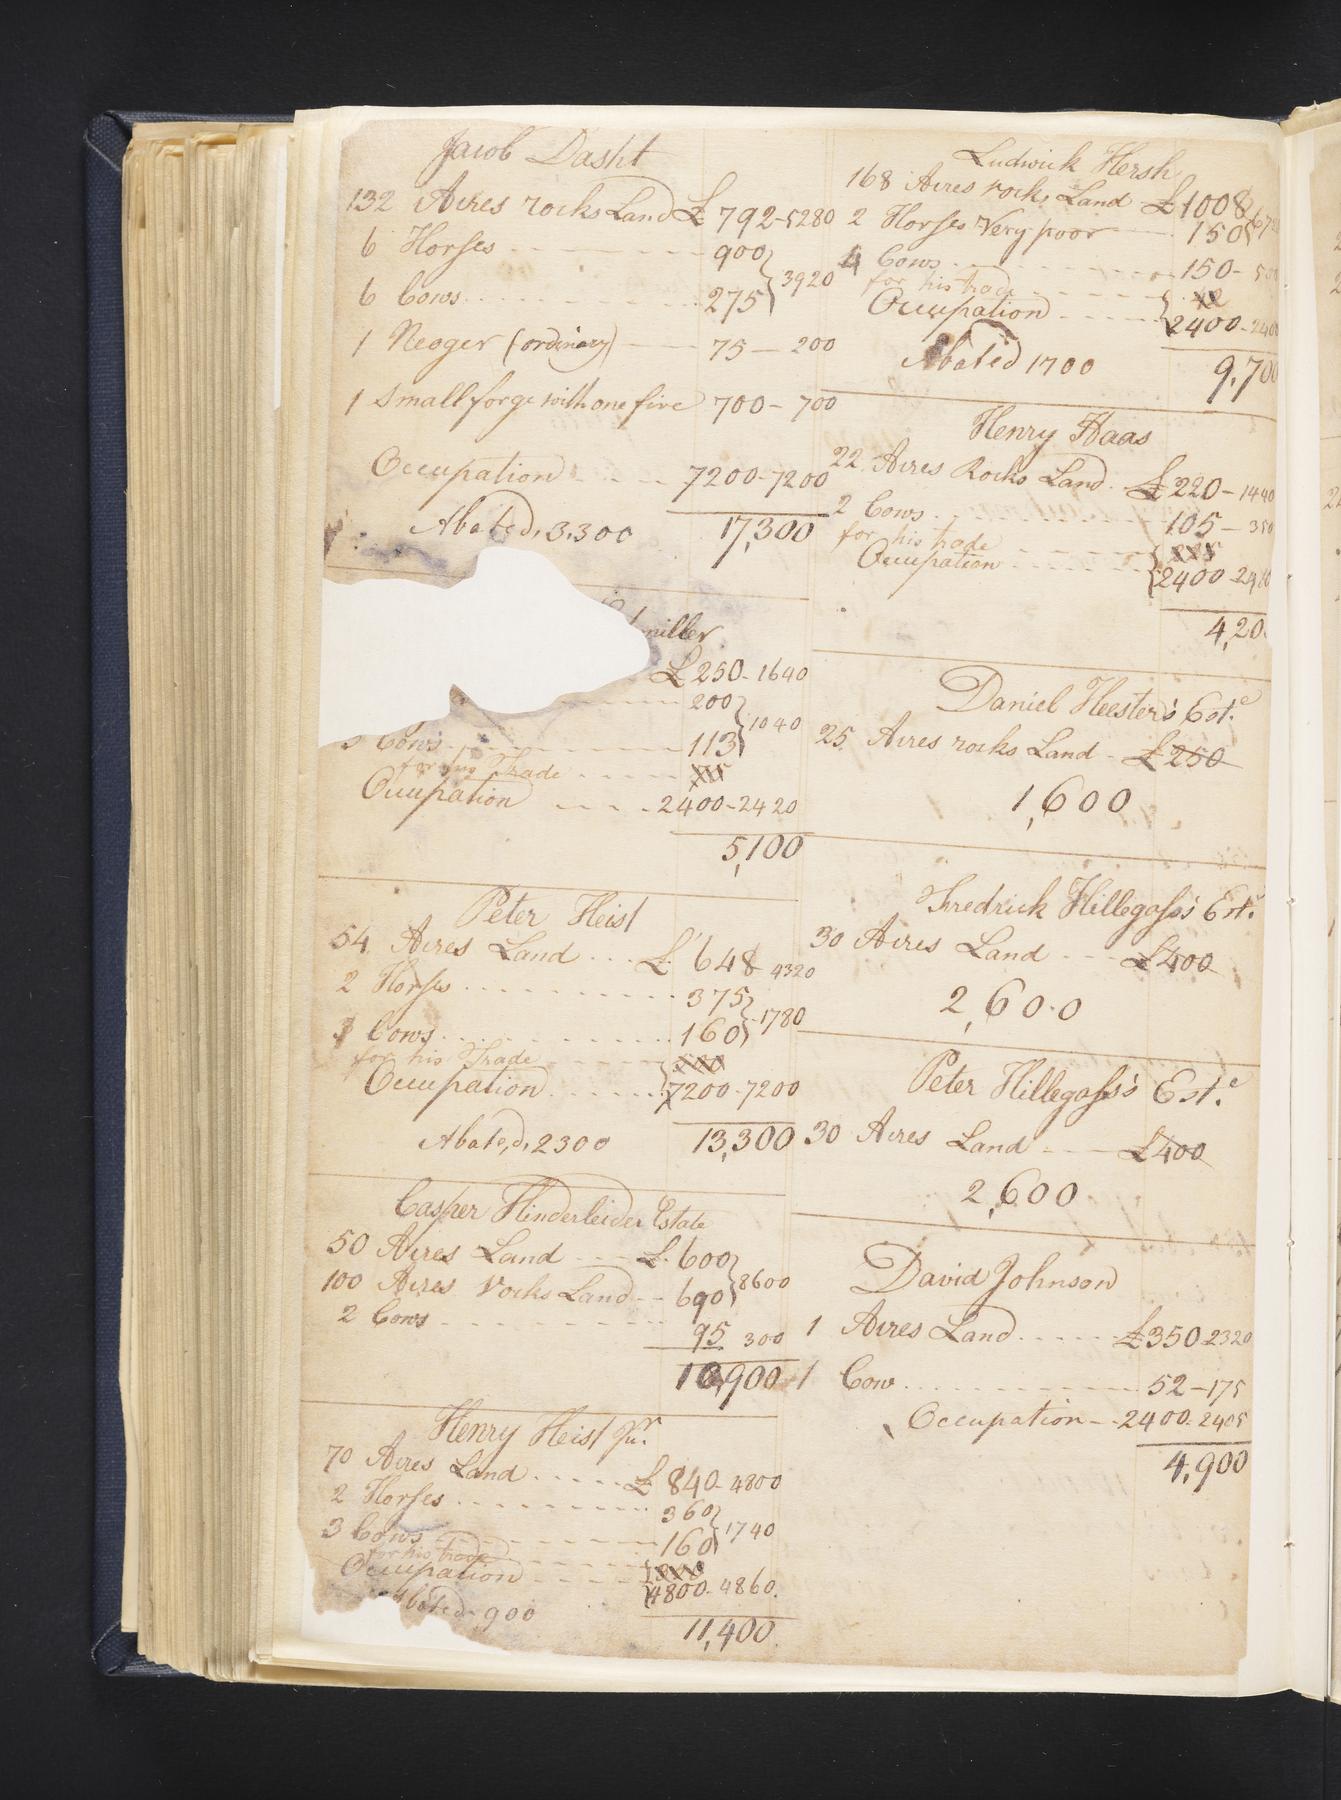 Jacob Dasht
132 Acres rocks Land £ 792-5280
6 Horses 900
6 Cows 275 } 3920
1 Neoger (ordinary) 75 - 200
1 Small forge with one fire 700 - 700
Occupation 7200-7200
Abated, 3,300 17,300
miller
£ 250-1640
200
Cows 113 } 1040
for his Trade
Occupation 2400-2420
5,100
Peter Heist
54 Acres Land £ 648 4320
2 Horses 375
3 Cows 160 } 1780
for his Trade
Occupation 7200-7200
Abated, 2300 13,300
Casper Hinderleider Estate
50 Acres Land £ 600
100 Acres Rocks Land 690 } 8600
2 Cows 95 300
10,900
Henry Heist Jur.
70 Acres Land £ 840-4800
2 Horses 360
3 Cows 160 } 1740
for his trade
Occupation 4800-4860
Abated 900
11,400
Ludwick Hersh
168 Acres rocks Land £ 1008
2 Horses Very poor 150
4 Cows 150-
for his trade
Occupation 2400-
Abated 1700 9,700
Henry Haas
22 Acres Rocks Land £ 220-1440
2 Cows 105 - 350
for his trade
Occupation 2400
4,20
Daniel Heester's Est.e
25 Acres rocks Land - £ 250
1,600
Fredrick Hillegass's Est.e
30 Acres Land £ 400
2,600
Peter Hillegass's Est.e
30 Acres Land £ 400
2,600
David Johnson
1 Acres Land £ 350-2320
1 Cow 52-175
Occupation 2400-2405
4,900